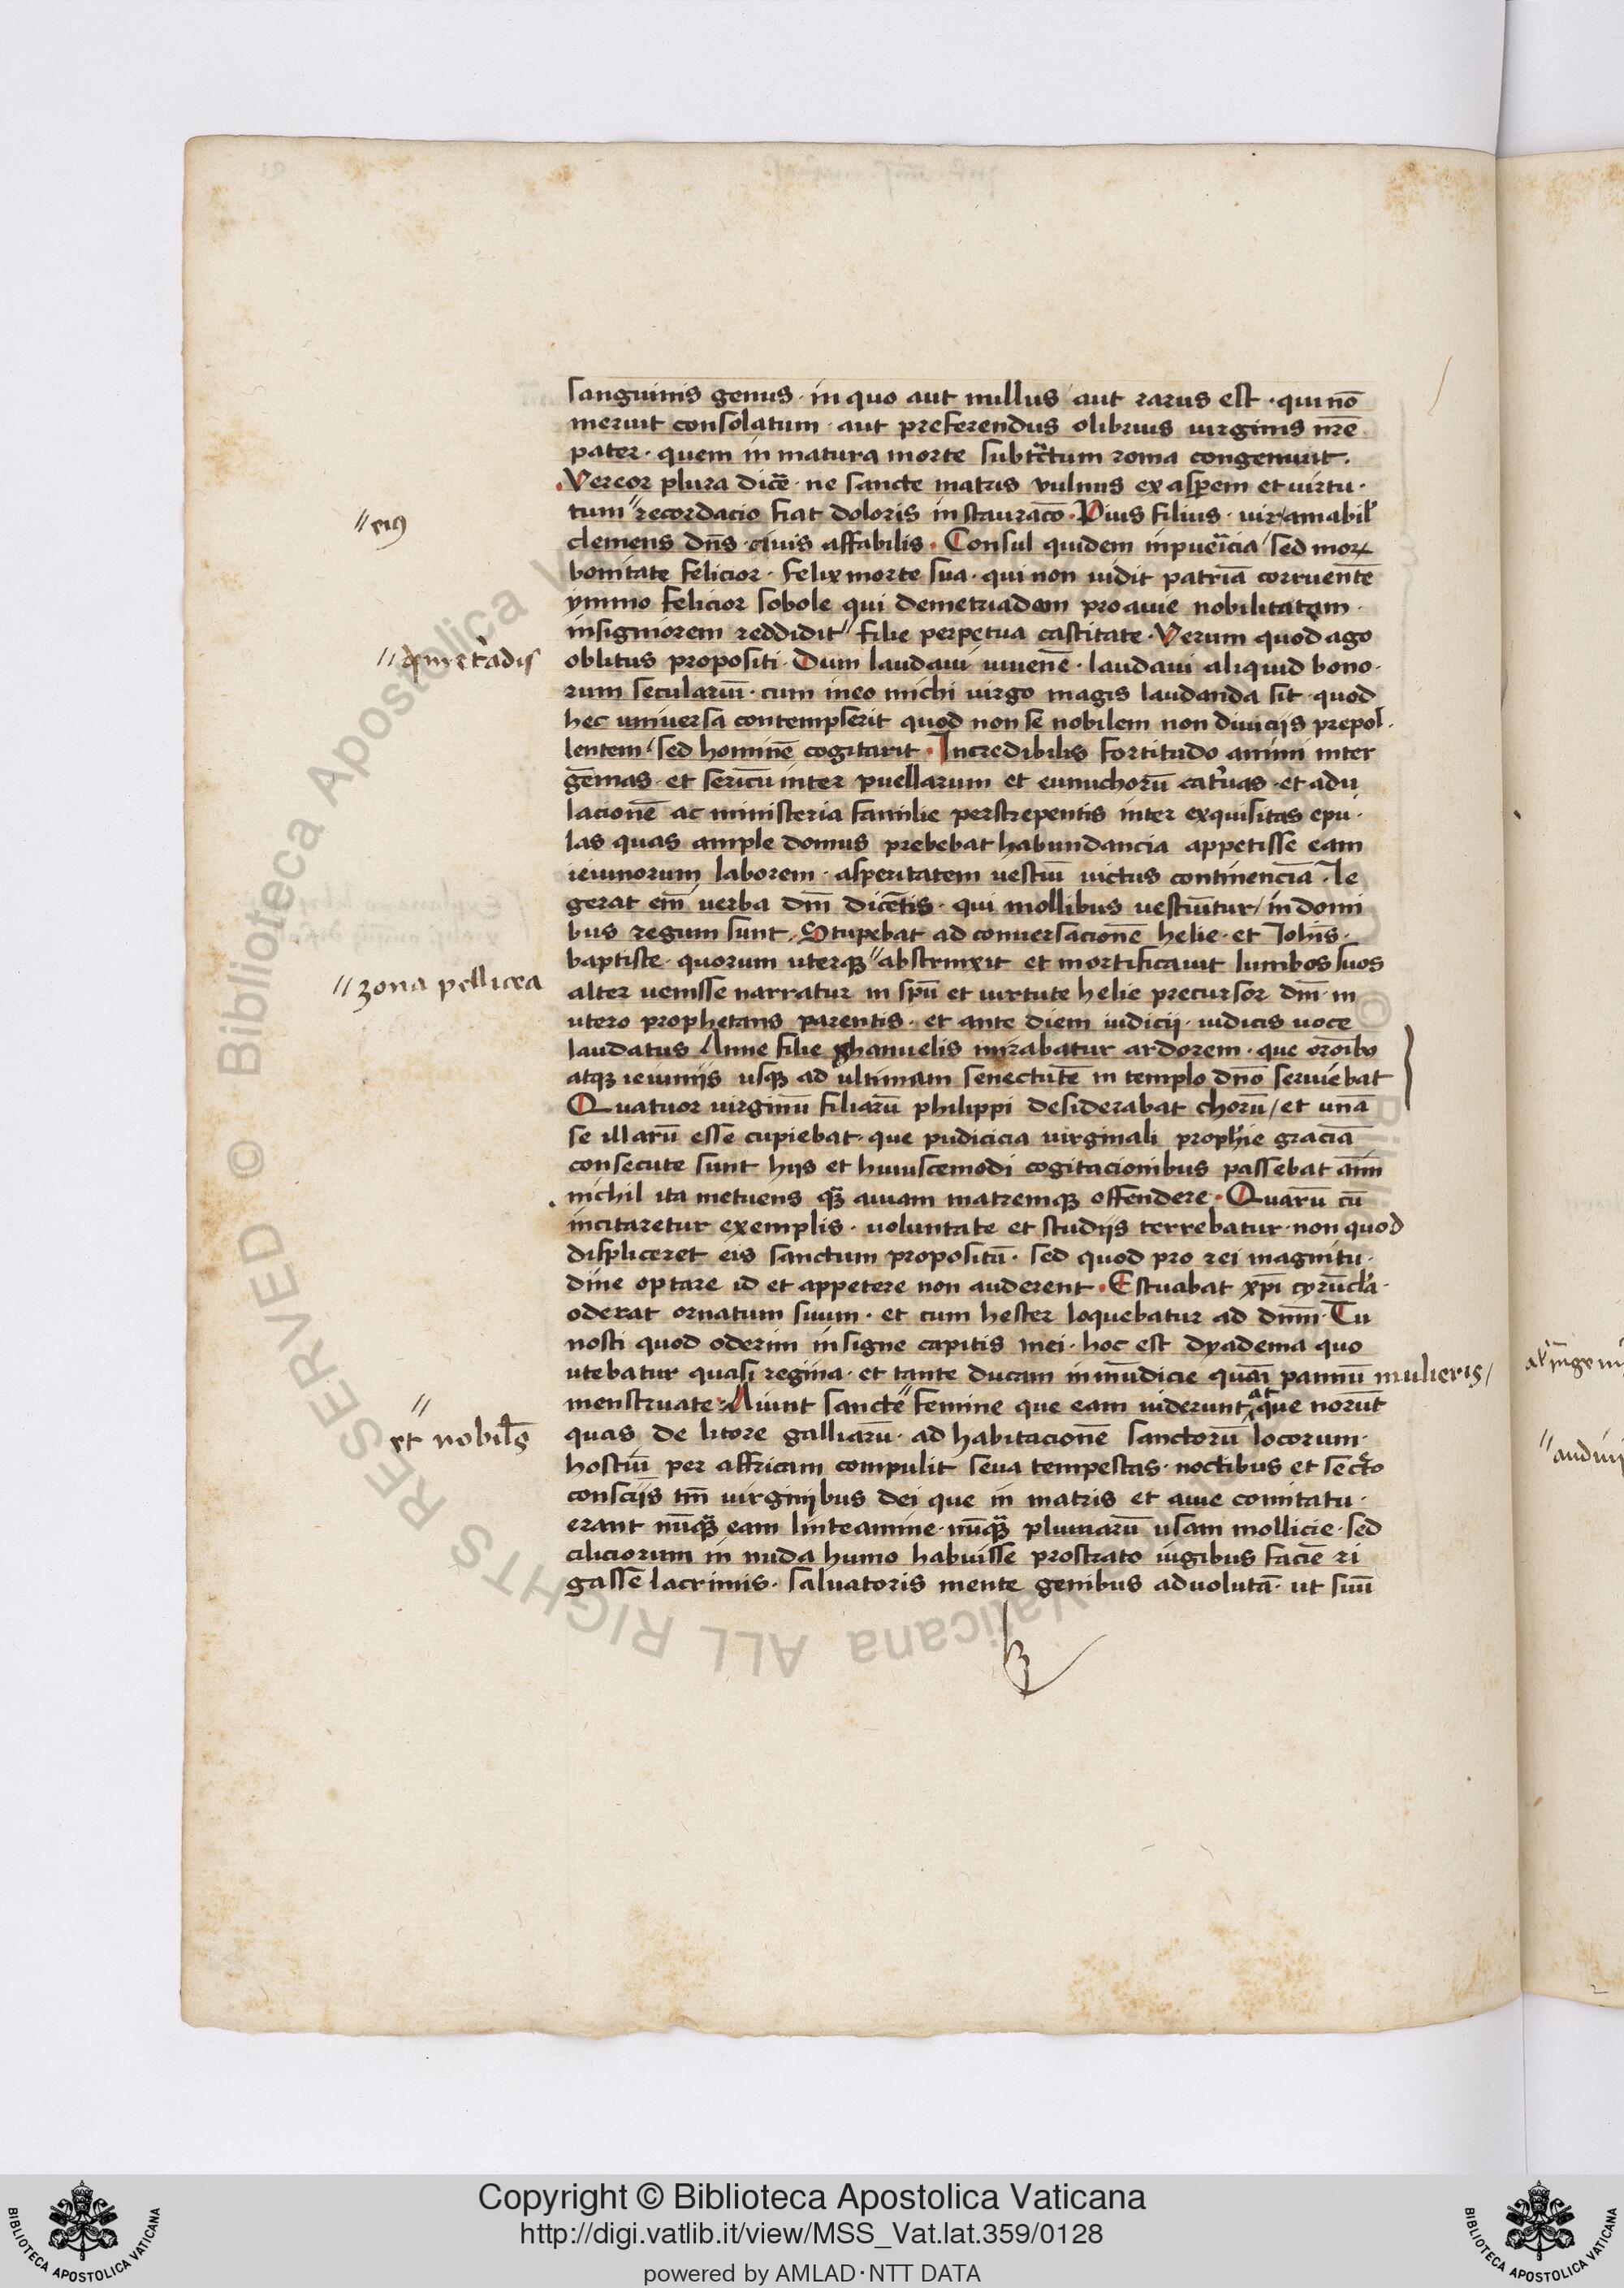 sanguinis genus · in quo aut nullus aut rarus est · qui nō
meruit consolatum · aut preferendus olibrius uirginis nr̄e
pater · quem in matura morte subtr̄ctum roma congemuit ·
Vereor plura dicē · ne sancte matris vulnus ex asp̄em et uirtu ·
// eiꝯ
tum // recordacio fiat doloris in stauracō · Pius filius · vir amabil̓
clemens dn̄s · ciuis affabilis · Consul quidem in puericia / sed moꝝ
bonitate felicior · felix morte sua · qui non uidit patriā corruentē
ymmo felicior sobole qui demetriadem pro auie nobilitatem ·
insigniorem reddidit // filie perpetua castitate · Verum quod ago
// demetr̓adis
oblitus propositi · Dum laudaui iuuenē · laudaui aliquid bono ·
rum seculariū · cum in eo michi uirgo magis laudanda sit · quod
hec uniuersa contempserit quod non se nobilem non diuicijs prepol ·
lentem / sed hominē cogitarit · Incredibilis fortitudo animi inter
gēmas · et sericū inter puellarum et eunuchorū cat̓uas · et adu
lacionē ac ministeria familie perstrepentis inter exquisitas epu ·
las quas ample domus prebebat habundancia appetisse eam
ieiunorum laborem · asperitatem uestiū uictus continenciā · le
gerat em̄ uerba dm̄ dicētis · qui mollibus uestiūtur / in domi
bus regum sunt // Stupebat ad conuersacionē helie · et Johis̄ ·
baptiste · quorum uterqꝫ // abstrinxit et mortificauit lumbos suos
// zona pellicea
alter uenisse narratur in spū et uirtute helie precursor dm̄ · in
utero prophetans parentis · et ante diem iudicij · iudicis uoce
laudatus Anne filie phanuelis mirabatur ardorem · que orōibꝯ
atqꝫ ieiunijs usqꝫ ad ultimam senectutē in templo dnō seruiebat
Quatuor uirginū filiarū philippi desiderabat chorū / et unā
se illarū esse cupiebat · que pudicicia uirginali proph̓ie graciā
consecute sunt hijs et huiuscemodi cogitacionibus passebat aīm
nichil ita metuens qꝫ̄ auiam matremqꝫ offendere · Quarū cū
incitaretur exemplis · uoluntate et studijs terrebatur · non quod
displiceret eis sanctum propositū · sed quod pro rei magnitu ·
dine optare id et appetere non auderent · Estuabat xp̄i tyrūcl̓a ·
oderat ornatum suum · et cum hester loquebatur ad dnm̄ · Tu
nosti quod oderim insigne capitis mei · hoc est dyadema quo
utebatur quasi regiina · et tante ducam inmūdicie quāi pannū mulieris /
menstruate · Aiunt sancte // femine que eam uiderunt at que norūt
// et nobil̄s
quas de litore galliarū · ad habitacionē sanctorū locorum ·
hostiū per affricam compulit seua tempestas · noctibus et secr̄to
conscijs tm̄ uirginibus dei que in matris et auie comitatu ·
erant nūqꝫ̄ eam linteamine · nūqꝫ̄ plumarū usam mollicie · sed
ciliciorum in nuda humo habuisse prostrato iugibus faciē ri
gasse lacrimis · saluatoris mente genibus aduolutā · ut suū
Copyright © Biblioteca Apostolica Vaticana
http://digi.vatlib.it/view/MSS_Vat.lat.359/0128
powered by AMLAD·NTT DATA
BIBLIOTECA APOSTOLICA VATICANA
BIBLIOTECA APOSTOLICA VATICANA
© Biblioteca Apostolica Vaticana ALL RIGHTS RESERVED